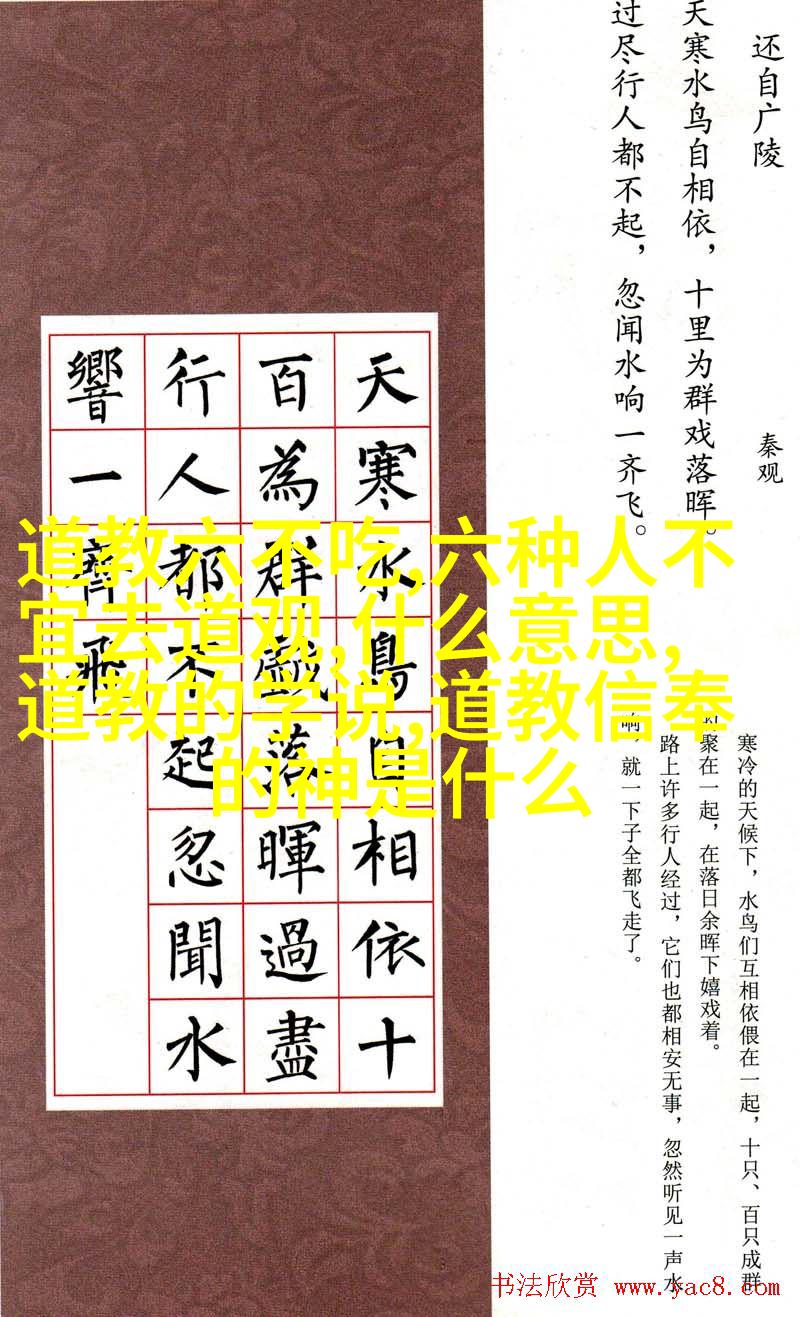 还自广陵
秦观
天寒水鸟自相依，十里为群戏落晖。
过尽行人都不起，忽闻水响一齐飞。
天寒水鳥自相依十
百為群戲落暉過盡
行人都不起忽聞水
響一齊飛
道教六不吃,六种人不
宜去道观,什么意思,
道教的学说,道教信奉
的神是什么
寒冷的天候下，水鸟们互相依偎在一起，十只、百只成群
聚在一起，在落日余晖下嬉戏着。
路上许多行人经过，它们也都相安无事，忽然听见一声水
响，就一下子全都飞走了。
书法欣赏 www.yac8.com